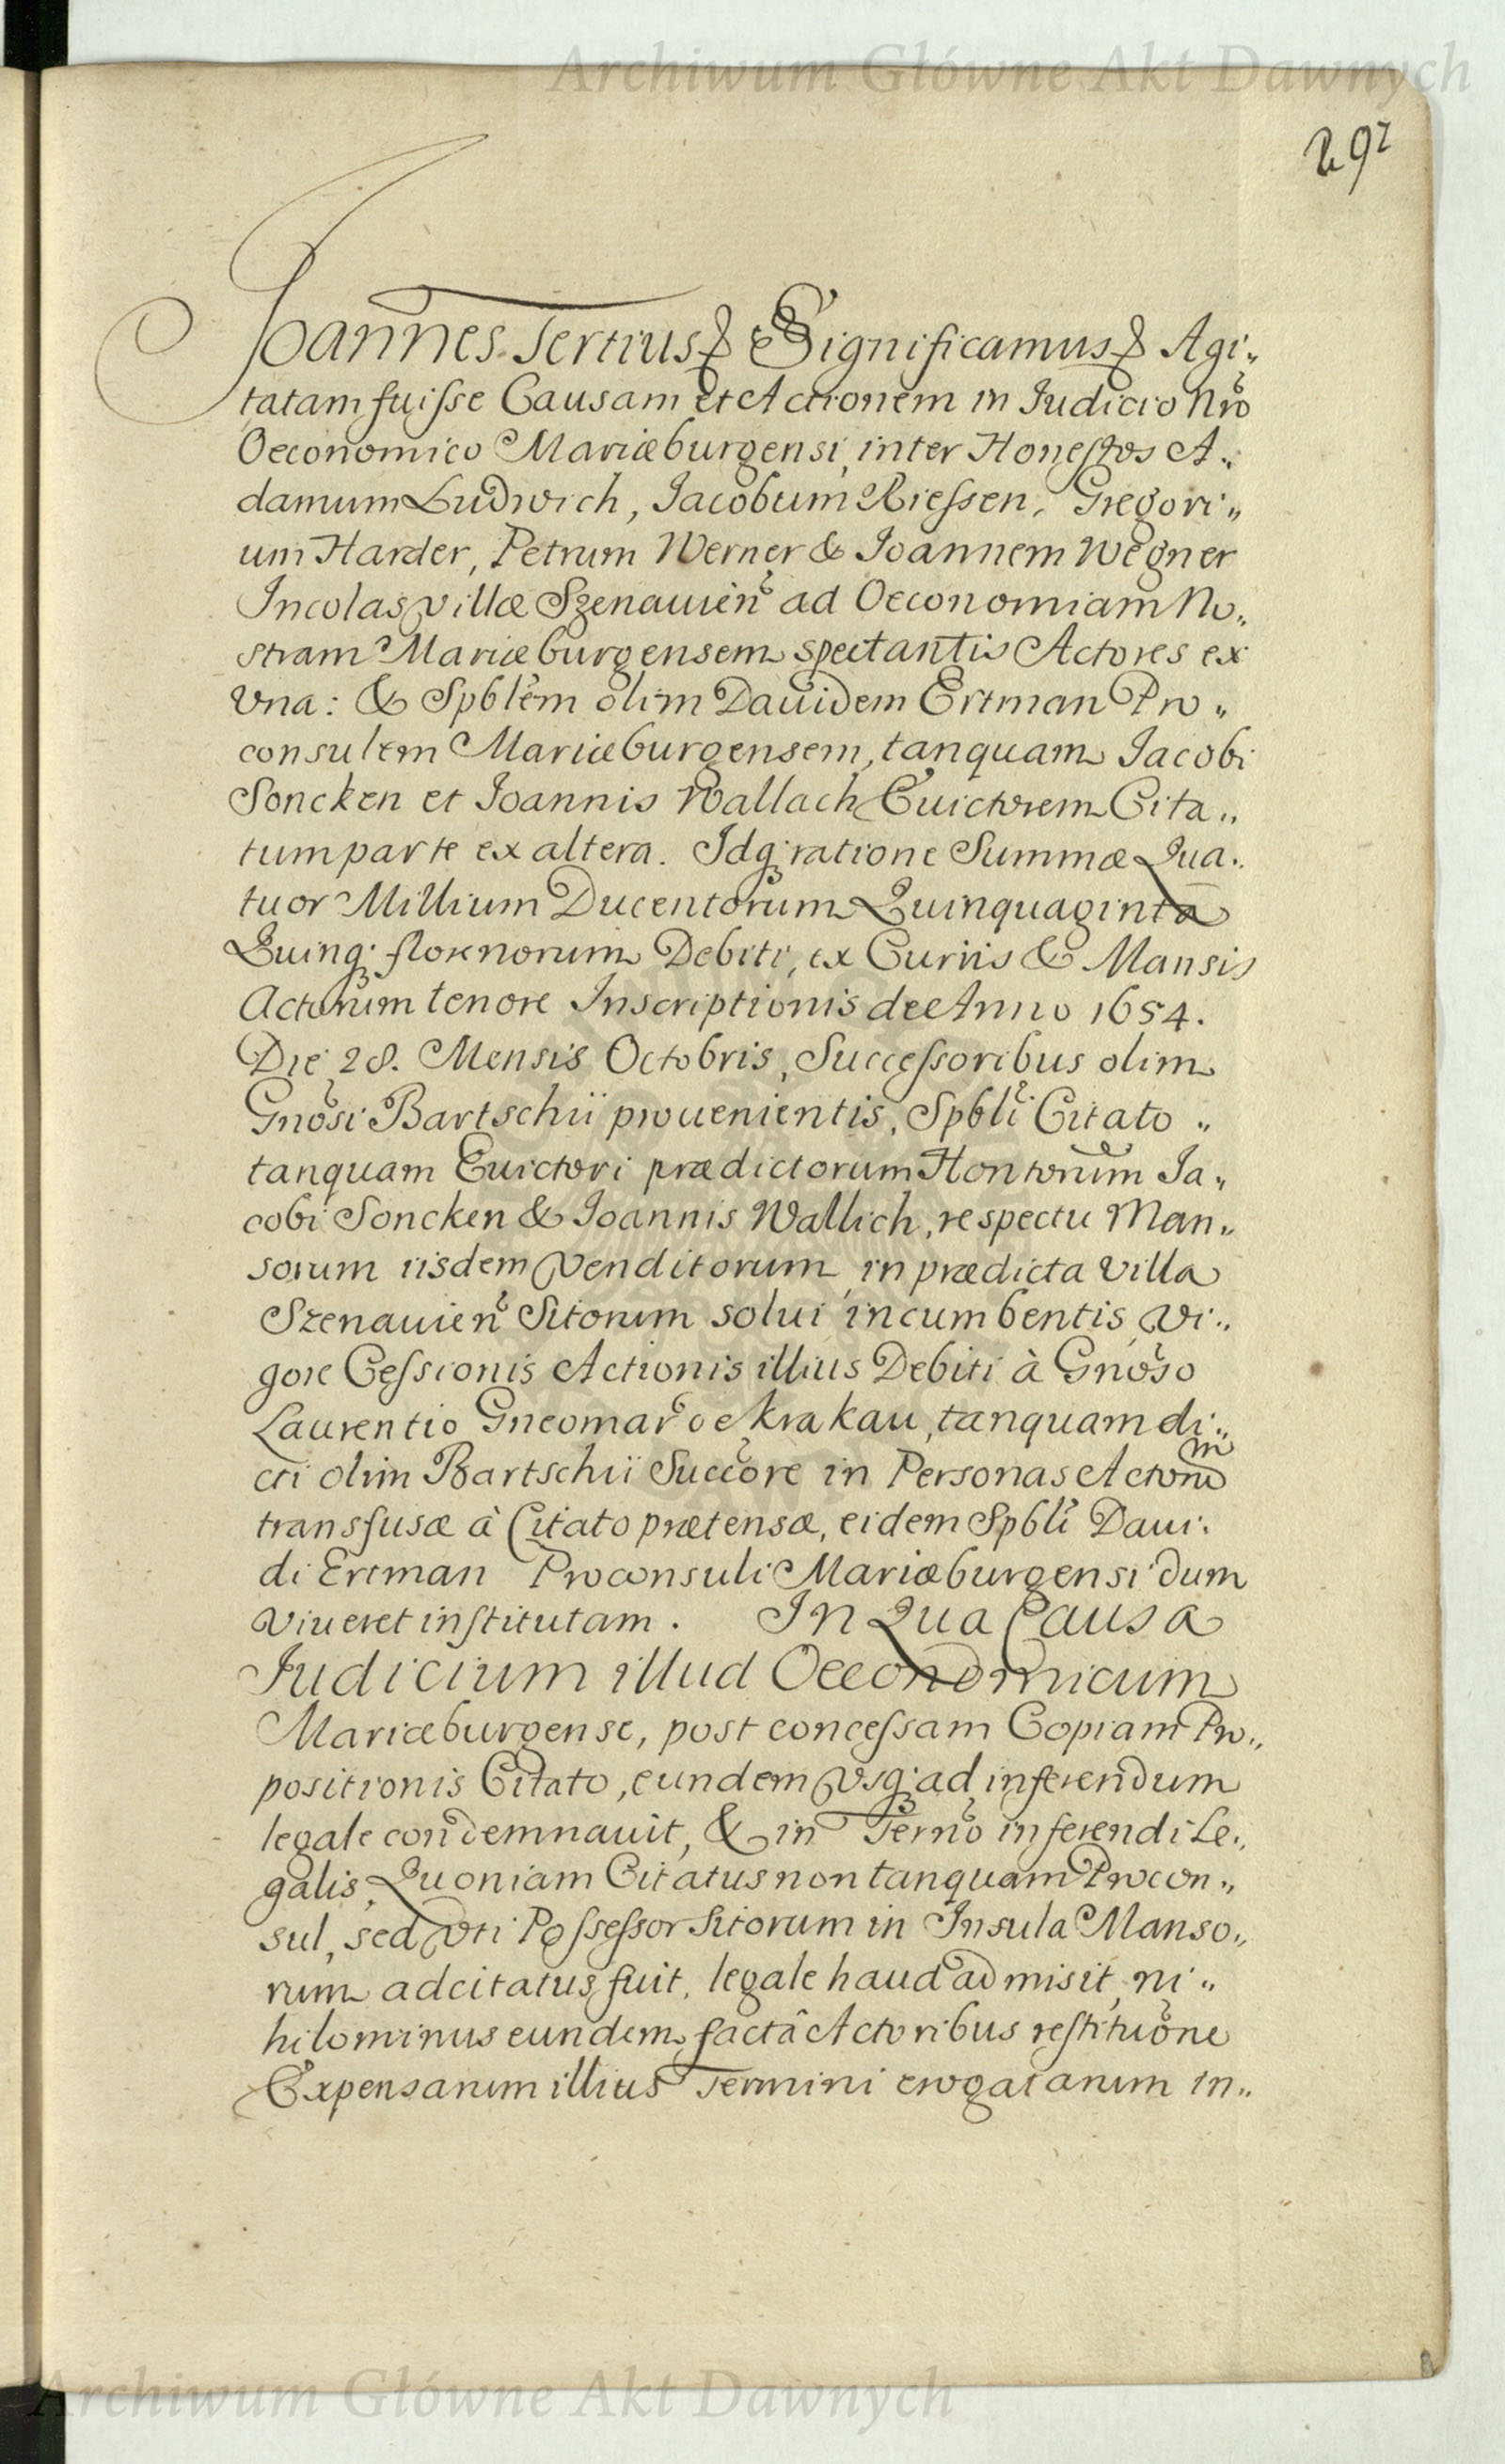 Archiwum Główne Akt Dawnych
292
Joannes Tertius &. Significamus &. Agi„
tatam fuiſse Causam et Actionem in Judicio Nro
Oeconomico Mariæburgensi, inter Honeſtos A„
damum Ludwich, Jacobum Rieſsen, Gregori„
um Harder, Petrum Werner & Joannem Wegner
Incolas villæ Szenauien ad Oeconomiam No„
stram Mariæburgensem spectantis Actores ex
Vna: & Spblem olim Dauidem Ertman Pro„
consulem Mariæburgensem, tanquam Jacobi
Soncken et Joannis Wallach Euictorem Cita„
tum parte ex altera. Idq; ratione Summæ Qua„
tuor Millium Ducentorum Quinquaginta
Quinq; florenorum Debiti, ex Curiis & Mansis
Actorum tenore Inscriptionis de Anno 1654.
Die 28. Mensis Octobris, Succeſsoribus olim
Gnosi Bartschii prouenientis, Spbli Citato „
tanquam Euictori prædictorum Hontorum Ja„
cobi Soncken & Joannis Wallich, respectu Man„
sorum iisdem venditorum, in prædicta villa
Szenauien Sitorum solui incumbentis, vi„
gore Ceſsionis Actionis illius Debiti à Gnoso
Laurentio Gneomar oe krakau, tanquam di„
cti olim Bartschii Succore in Personas Actorum
transfusæ à Citato prætensæ, eidem Spbli Daui„
di Ertman Proconsuli Mariæburgensi dum
viueret inſtitutam. In Qua Causa
Judicium illud Oeconomicum
Mariæburgense, post conceſsam Copiam Pro„
positionis Citato, eundem vsq; ad inferendum
legale condemnauit, & in Terno inferendi Le„
galis, Quoniam Citatus non tanquam Procon„
sul, sed vti Poſseſsor sitorum in Insula Manso„
rum adcitatus fuit, legale haud admisit, ni„
hilominus eundem, factâ Actoribus reſtituone
Expensarum illius Termini erogatarum in„
Archiwum Główne Akt Dawnych